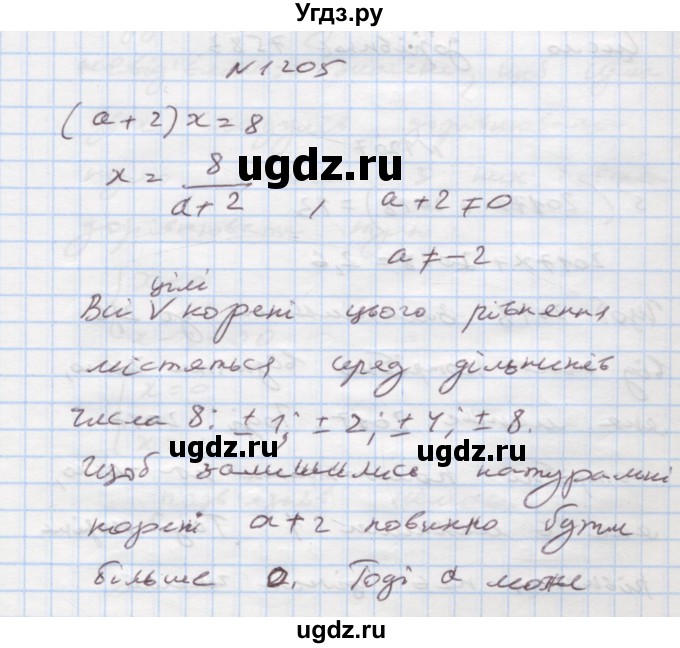 Угдз.ру
N 1205
(a+2)x=8
x = 8/(a+2), a+2≠0
a≠-2
цілі
Всі V корені цього рівняння
містяться серед дільників
числа 8: ±1; ±2; ±4; ±8.
Щоб залишились натуральні
корені a+2 повинно бути
більше 0. Тоді a може
ugdz.ru
ugdz.ru
ugdz.ru
ugdz.ru